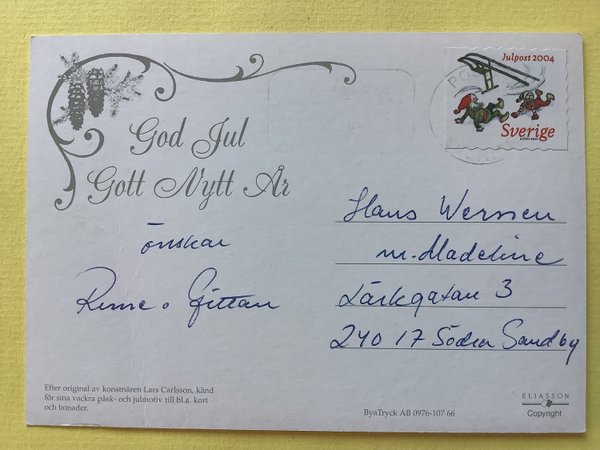 God Jul
Gott Nytt År
önskar
Rune o Gittan
Julpost 2004
Sverige
Hans Werssen
m. Madeline
Lärkgatan 3
240 17 Södra Sandby
Efter original av konstnären Lars Carlsson, känd
för sina vackra påsk- och julmotiv till bl.a. kort
och bonader.
ByaTryck AB 0976-107 66
ELIASSON
Copyright